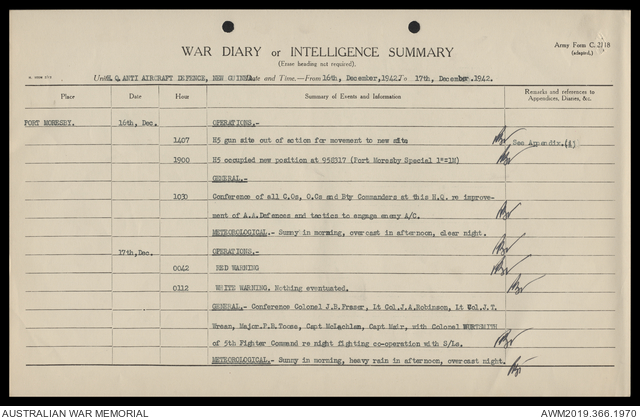 Army Form C. 2118
(adapted.)
WAR DIARY or INTELLIGENCE SUMMARY
(Erase heading not required).
Unit H.Q. ANTI AIRCRAFT DEFENCE, NEW GUINEA Date and Time.—From 16th, December, 1942. To 17th, December. 1942.
Place Date Hour Summary of Events and Information Remarks and references to Appendices, Diaries, &c.
PORT MORESBY. 16th, Dec. OPERATIONS.-
1407 H5 gun site out of action for movement to new site See Appendix. (A)
1900 H5 occupied new position at 958317 (Port Moresby Special 1"=1M)
GENERAL.-
1030 Conference of all C.Os, O.Cs and Bty Commanders at this H.Q. re improve-
ment of A.A. Defences and tactics to engage enemy A/C.
METEOROLOGICAL.- Sunny in morning, overcast in afternoon, clear night.
17th, Dec. OPERATIONS.-
0042 RED WARNING
0112 WHITE WARNING. Nothing eventuated.
GENERAL.- Conference Colonel J.B. Fraser, Lt Col. J.A. Robinson, Lt Col. J.T.
Wrean, Major. P.B. Toose, Capt McLachlan, Capt Muir, with Colonel WURTSMITH
of 5th Fighter Command re night fighting co-operation with S/Ls.
METEOROLOGICAL.- Sunny in morning, heavy rain in afternoon, overcast night.
AUSTRALIAN WAR MEMORIAL AWM2019.366.1970